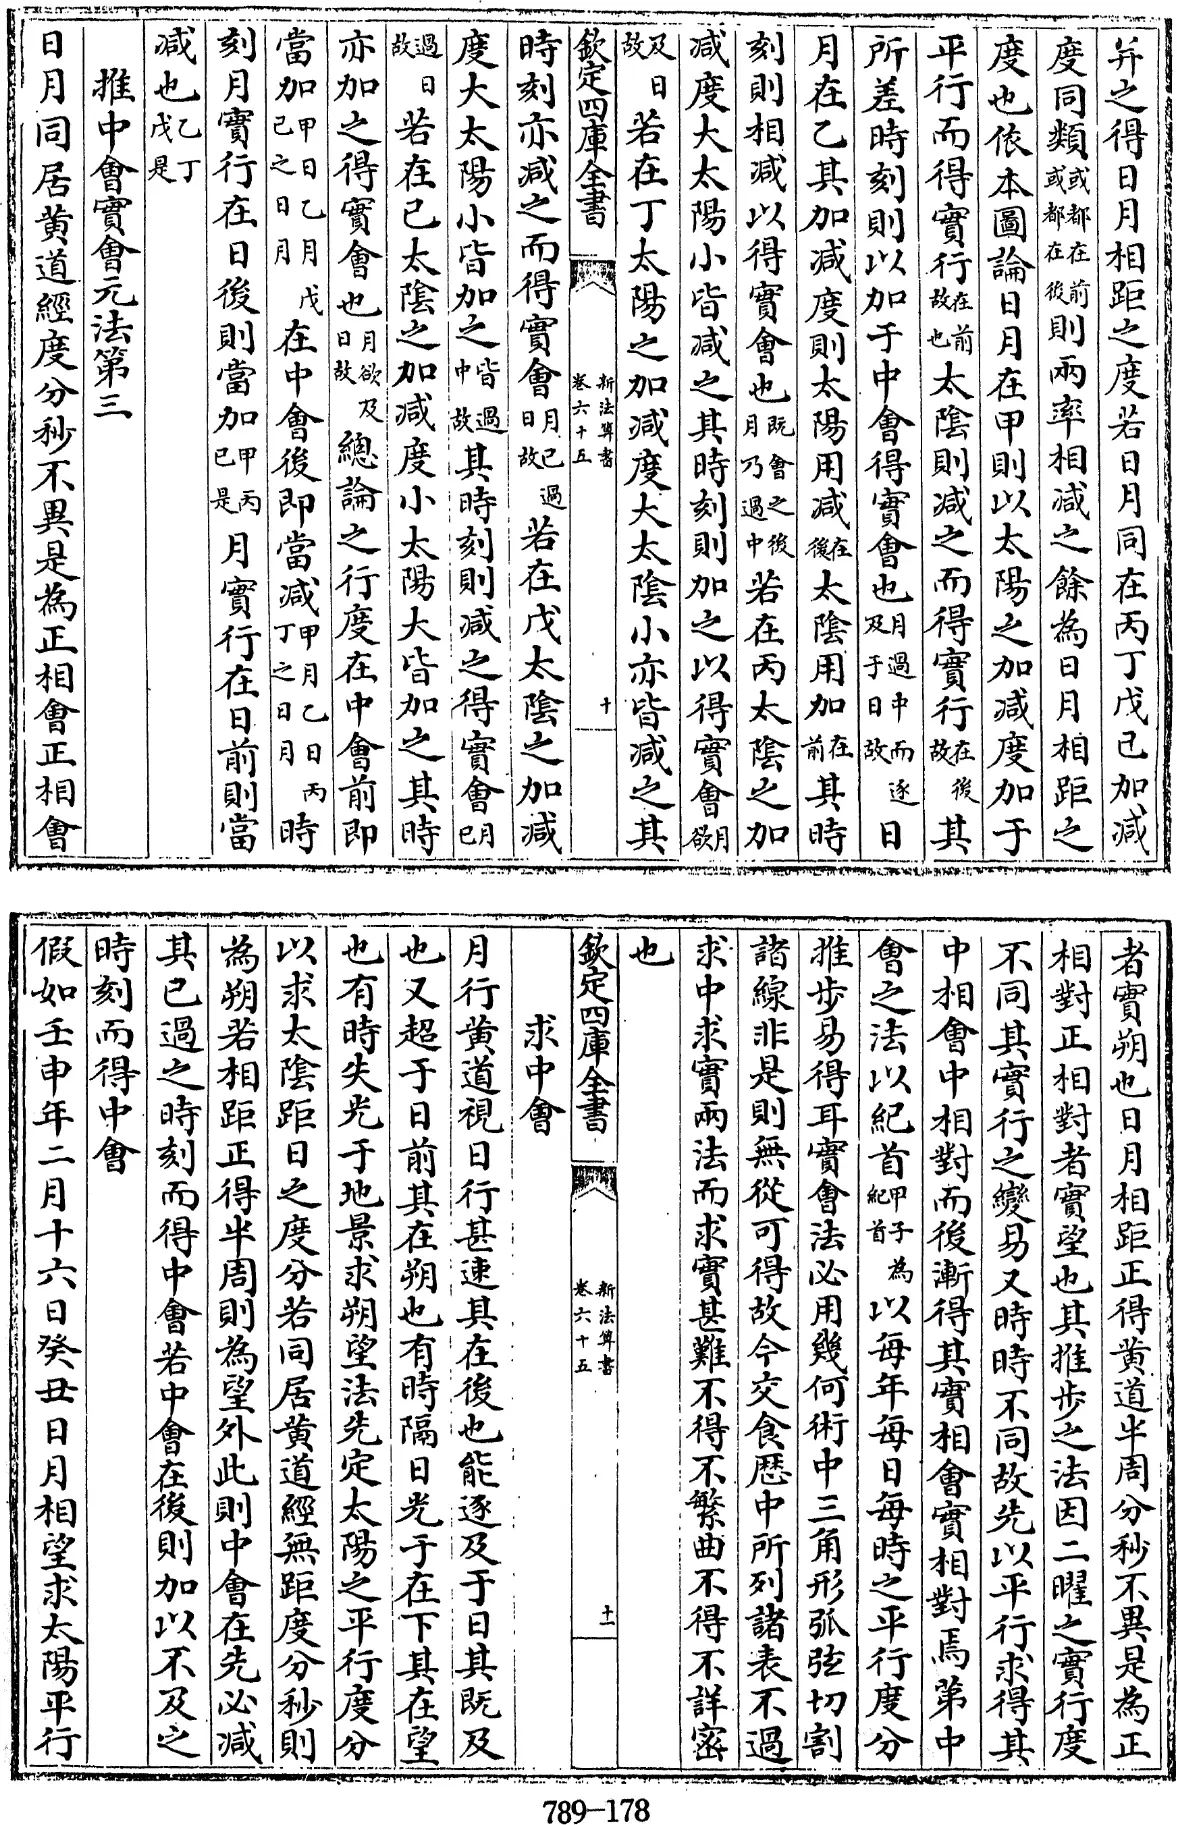 并之得日月相距之度若日月同在丙丁戊己加減
度同類或都在前或都在後則兩率相減之餘為日月相距之
度也依本圖論日月在甲則以太陽之加減度加于
平行而得實行在前故也太陰則減之而得實行在後故其
所差時刻則以加于中會得實會也月過中而逐及于日故日
月在乙其加減度則太陽用減在後太陰用加在前其時
刻則相減以得實會也既會之後月乃過中若在丙太陰之加
減度大太陽小皆減之其時刻則加之以得實會月欲
及日故若在丁太陽之加減度大太陰小亦皆減之其
欽定四庫全書 新法算書卷六十五 十
時刻亦減之而得實會月已過日故若在戊太陰之加減
度大太陽小皆加之皆過中故其時刻則減之得實會月已
過日故若在己太陰之加減度小太陽大皆加之其時
亦加之得實會也月欲及日故總論之行度在中會前即
當加甲日乙月戊己之日月在中會後即當減甲月乙日丙丁之日月時
刻月實行在日後則當加甲丙己是月實行在日前則當
減也乙丁戊是
推中會實會元法第三
日月同居黃道經度分秒不異是為正相會正相會
者實朔也日月相距正得黃道半周分秒不異是為正
相對正相對者實望也其推步之法因二曜之實行度
不同其實行之變易又時時不同故先以平行求得其
中相會中相對而後漸得其實相會實相對焉第中
會之法以紀首甲子為紀首以每年每日每時之平行度分
推步易得耳實會法必用幾何術中三角形弧弦切割
諸線非是則無從可得故今交食歷中所列諸表不過
求中求實兩法而求實甚難不得不繁曲不得不詳密
也
欽定四庫全書 新法算書卷六十五 十一
求中會
月行黃道視日行甚速其在後也能逐及于日其既及
也又超于日前其在朔也有時隔日光于在下其在望
也有時失光于地景求朔望法先定太陽之平行度分
以求太陰距日之度分若同居黃道經無距度分秒則
為朔若相距正得半周則為望外此則中會在先必減
其已過之時刻而得中會若中會在後則加以不及之
時刻而得中會
假如壬申年二月十六日癸丑日月相望求太陽平行
789-178